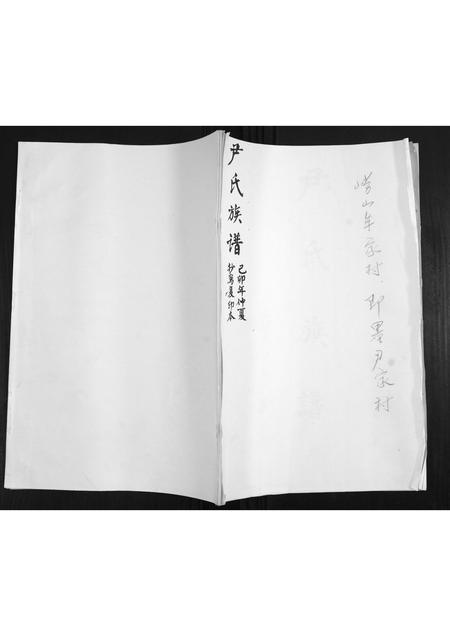 崂山牟家村.即墨尹家村
尹氏族谱
己卯年仲夏
抄写复印本
尹氏族谱